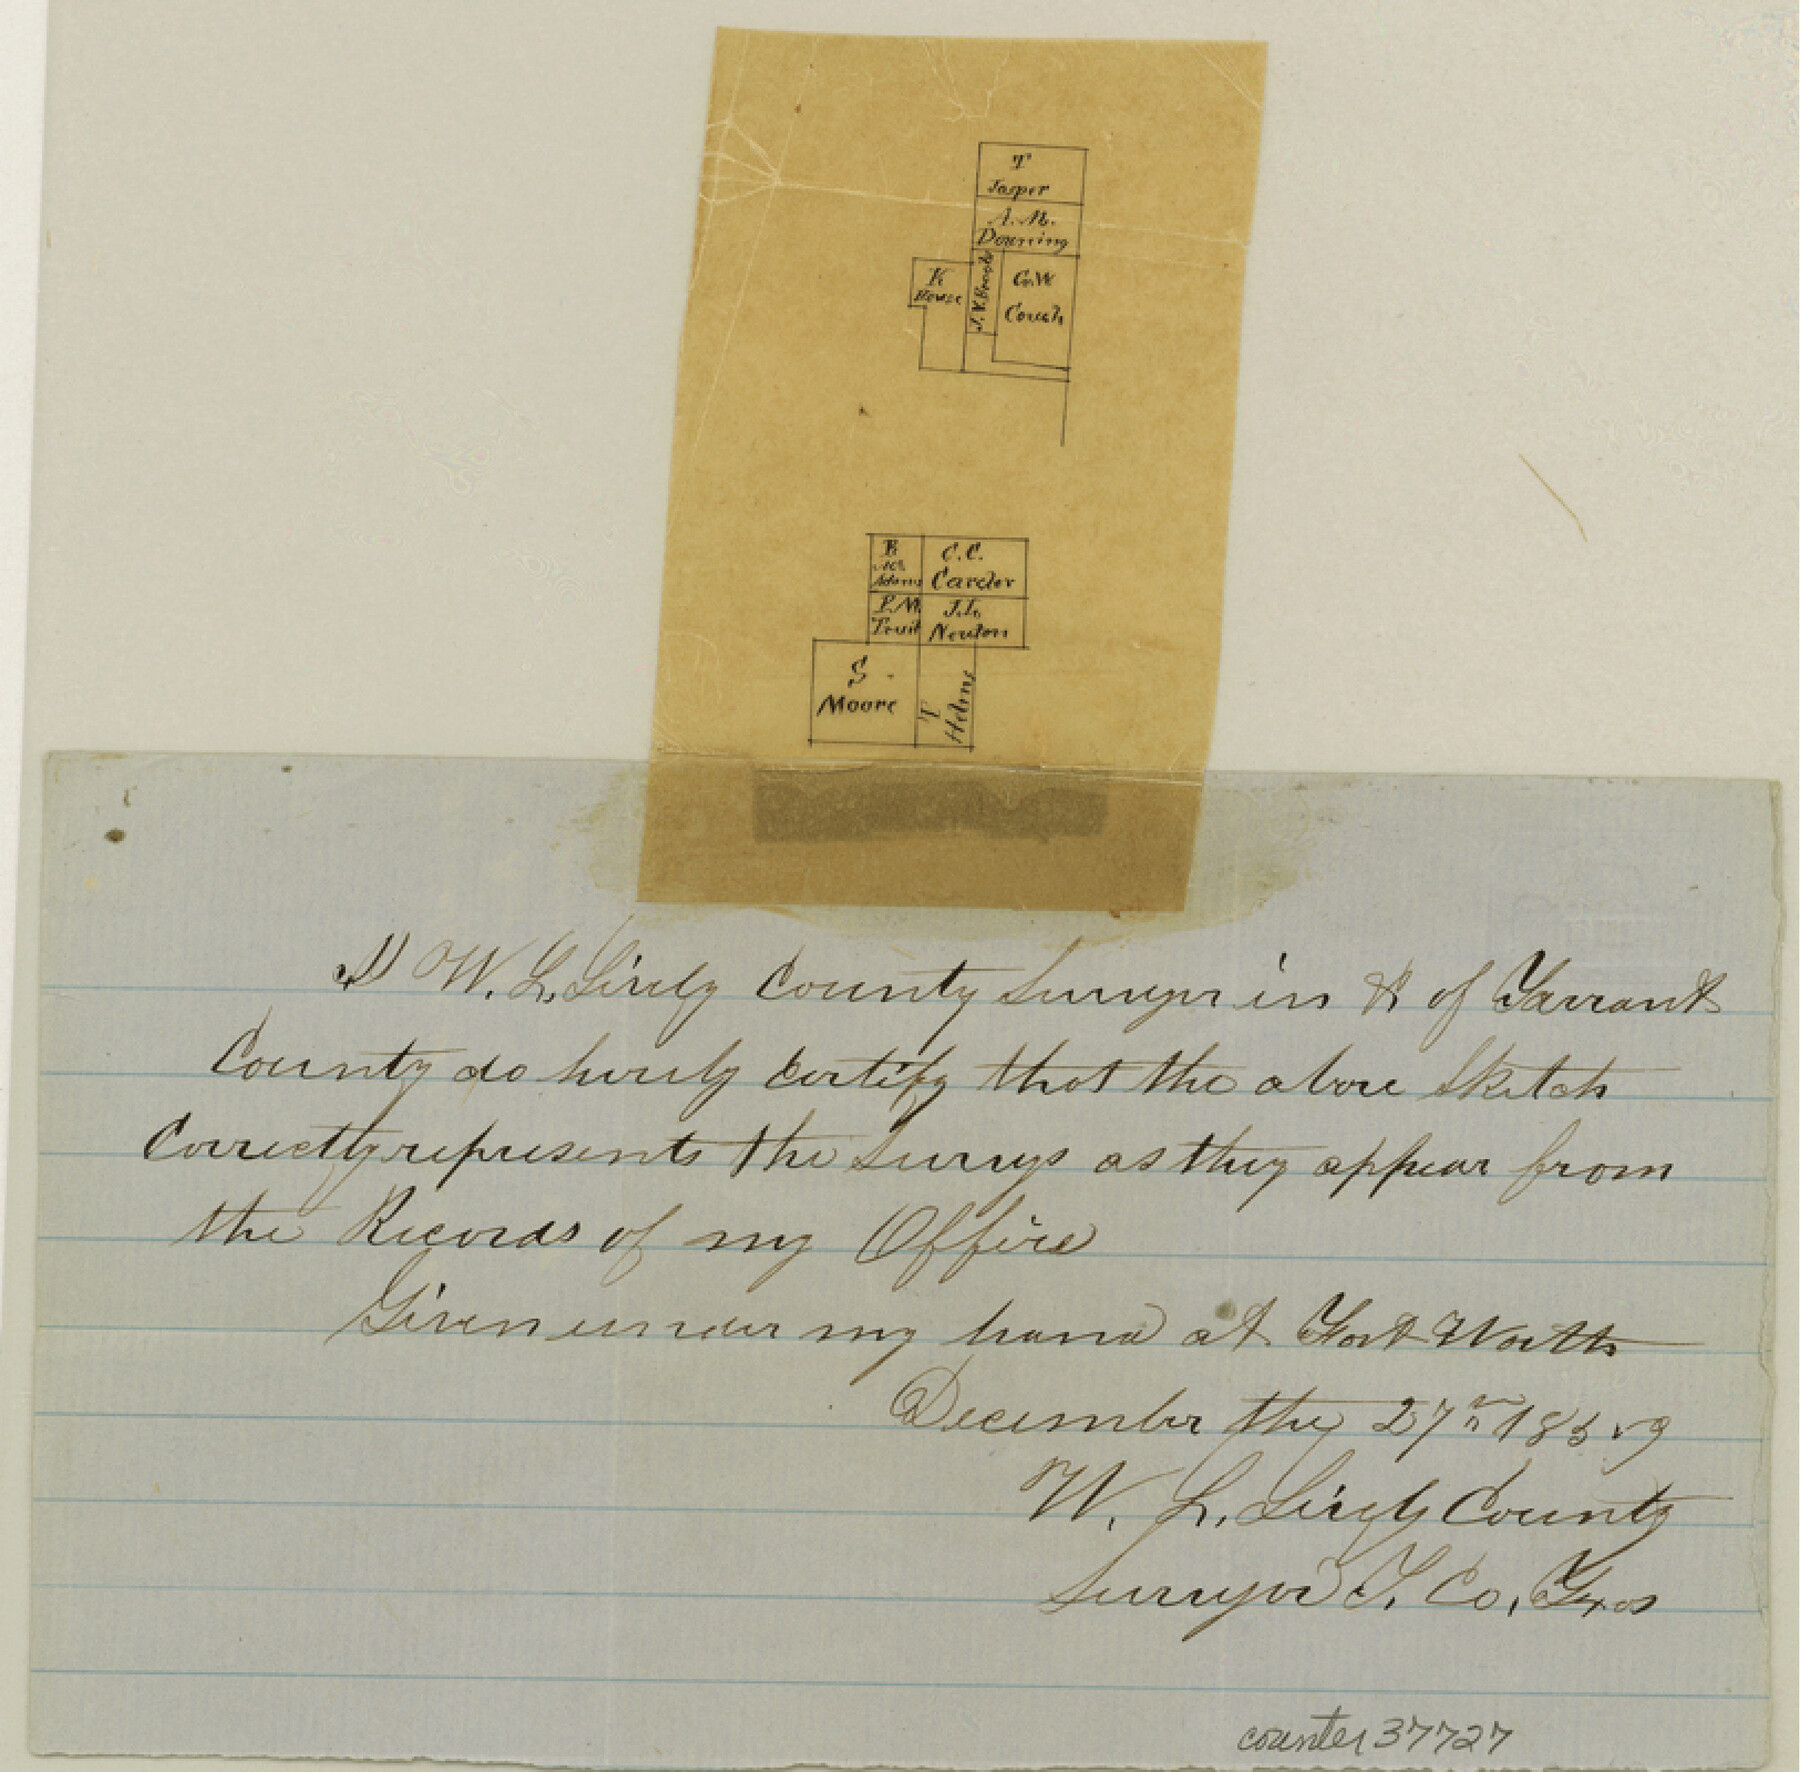 T
Jasper
A. M.
Downing
K
House
G.W.
Couch
B
Mc
Adams
C.C.
Carder
P.M.
Truit
J.L.
Newton
S
Moore
T
Helms
I W. L. County Surveyor in & of Tarrant
County do hereby certify that the above Sketch
Correctly represents the Surveys as they appear from
the Records of my Office
Given under my hand at Fort Worth
December the 27th 1859
W. L. County
Surveyor T. Co, Texas
counter 37727